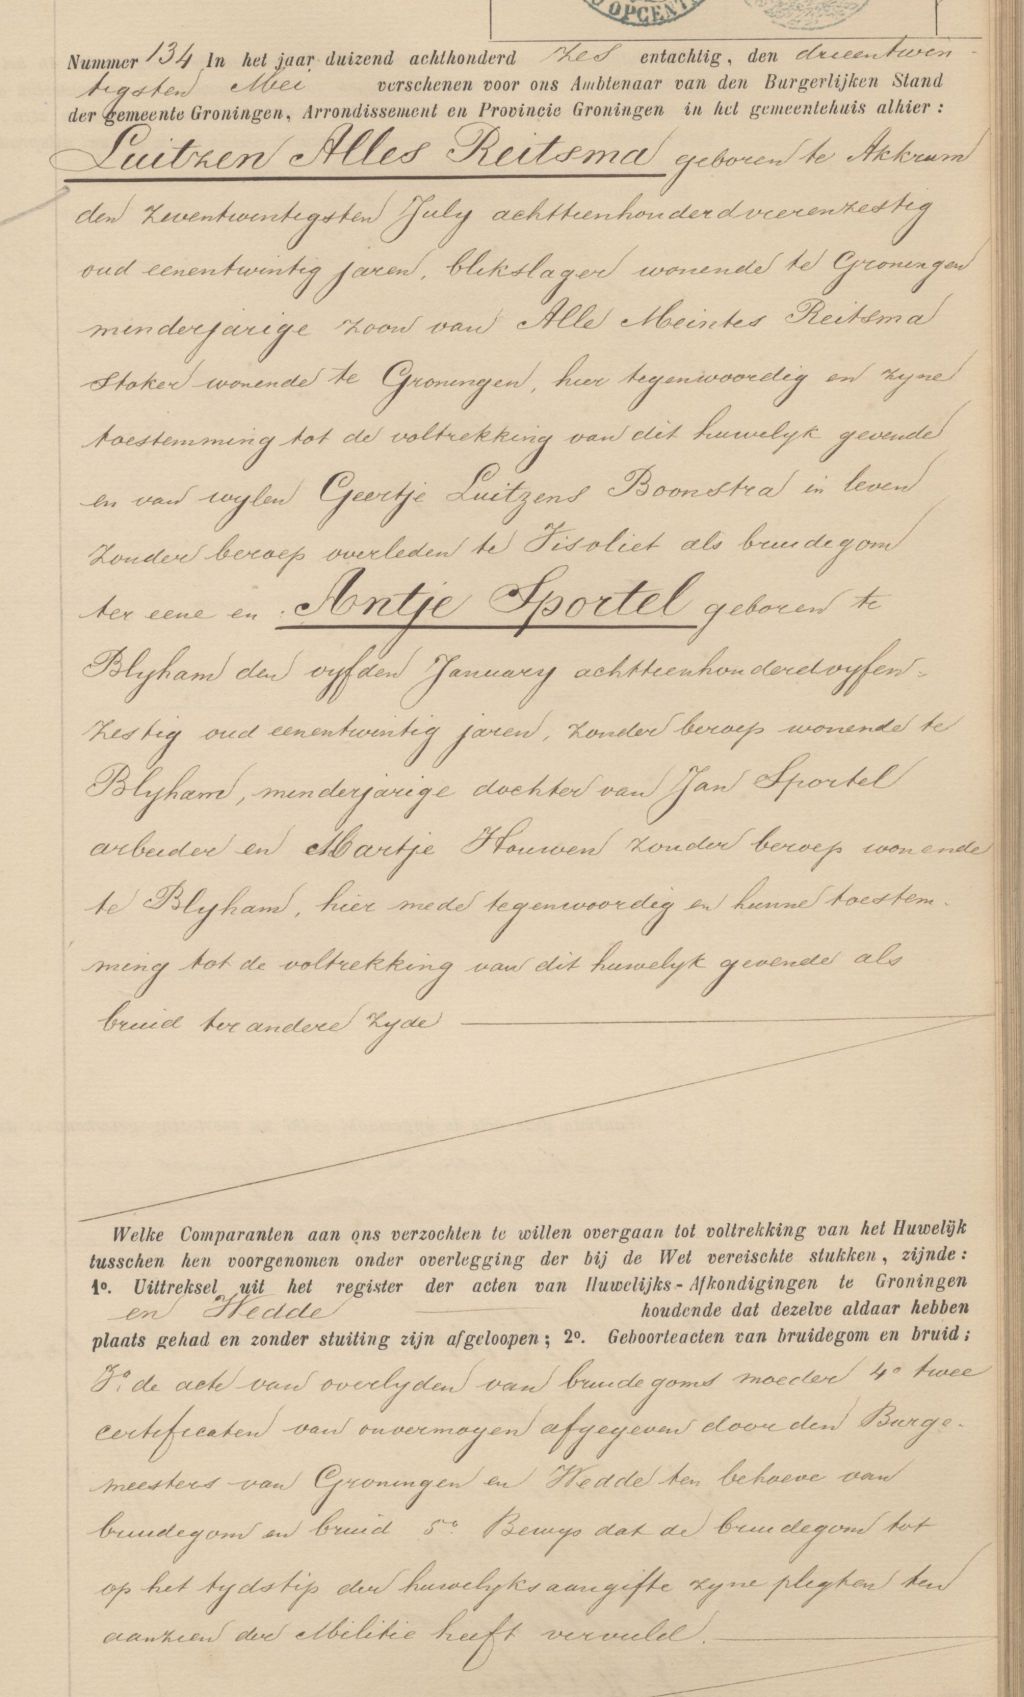 OPCENT
Nummer 134 In het jaar duizend achthonderd zes entachtig, den drieentwin-
tigsten Mei verschenen voor ons Ambtenaar van den Burgerlijken Stand
der gemeente Groningen, Arrondissement en Provincie Groningen in het gemeentehuis alhier:
Luitzen Alles Reitsma geboren te Akkrum
den zeventwintigsten July achttienhonderdvierenzestig
oud eenentwintig jaren, blikslager wonende te Groningen
minderjarige zoon van Alle Meintes Reitsma
Stoker wonende te Groningen, hier tegenwoordig en zyne
toestemming tot de voltrekking van dit huwelyk gevende
en van wylen Geertje Luitzens Boonstra in leven
zonder beroep overleden te Visvliet als bruidegom
ter eene en Antje Sportel geboren te
Blyham den vyfden January achttienhonderdvyfen-
zestig oud eenentwintig jaren, zonder beroep wonende te
Blyham, minderjarige dochter van Jan Sportel
arbeider en Martje Houwen zonder beroep wonende
te Blyham, hier mede tegenwoordig en hunne toestem-
ming tot de voltrekking van dit huwelyk gevende als
bruid ter andere zyde
Welke Comparanten aan ons verzochten te willen overgaan tot voltrekking van het Huwelijk
tusschen hen voorgenomen onder overlegging der bij de Wet vereischte stukken, zijnde:
1o. Uittreksel uit het register der acten van Huwelijks-Afkondigingen te Groningen
en Wedde houdende dat dezelve aldaar hebben
plaats gehad en zonder stuiting zijn afgeloopen; 2o. Geboorteacten van bruidegom en bruid;
3o. de acte van overlyden van bruidegoms moeder 4o twee
certificaten van onvermogen afgegeven door den Burge-
meesters van Groningen en Wedde ten behoeve van
bruidegom en bruid 5o. Bewys dat de bruidegom tot
op het tydstip der huwelyksaangifte zyne pligten ten
aanzien der Militie heeft vervuld.